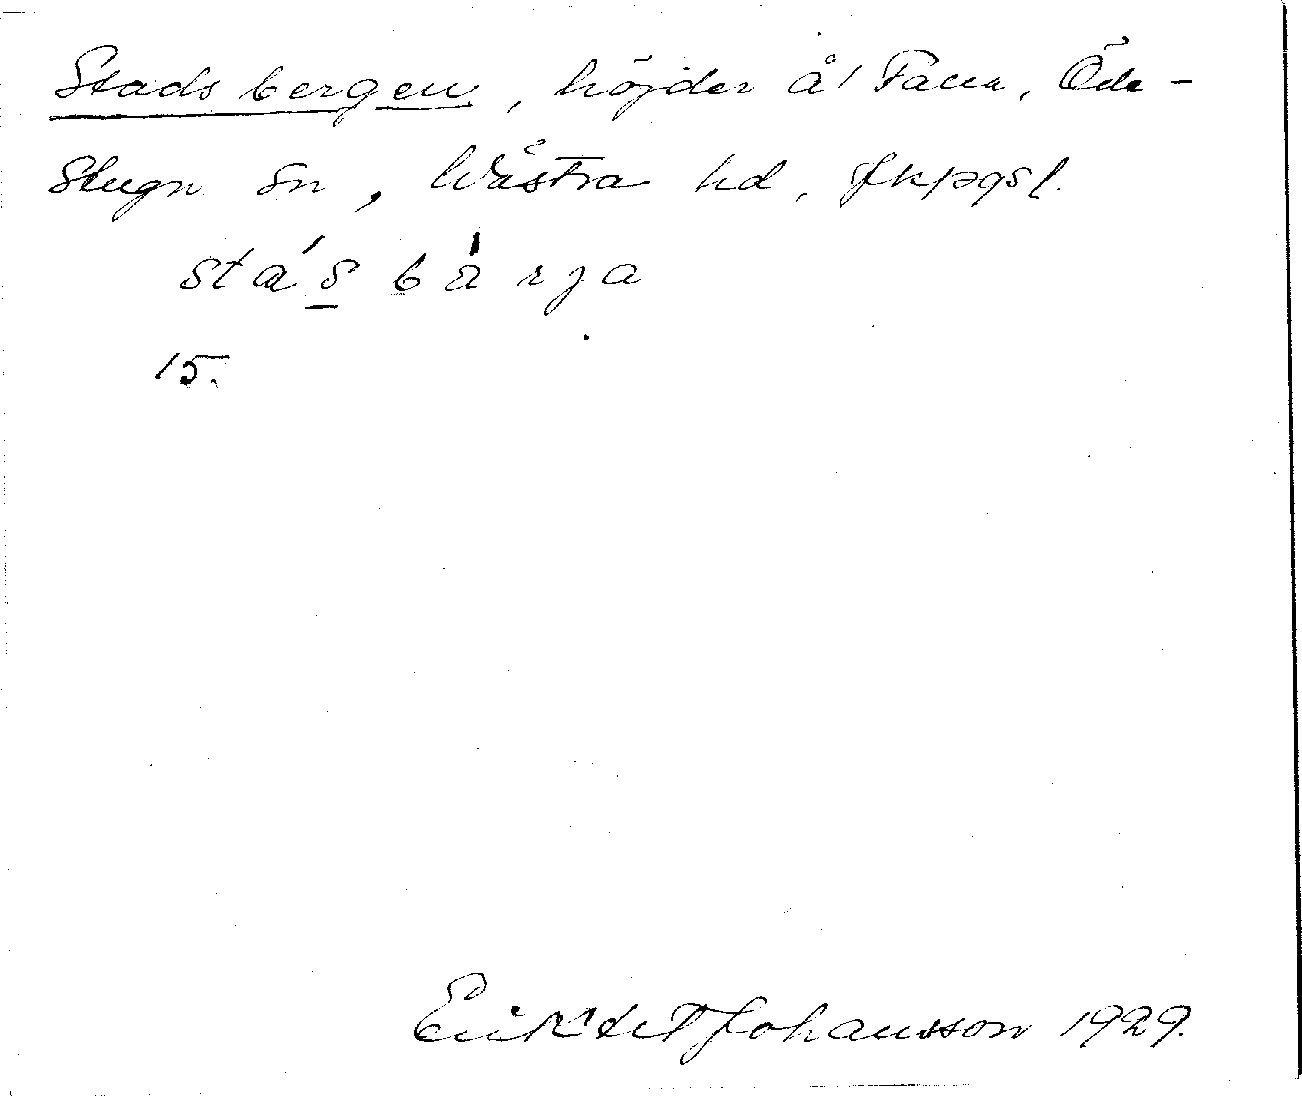 Stadsbergen, höjder å Tana, Öde-
Stugn sn, Wästra hd, Jkpgsl.
stásbàrja
15.
Johansson 1929.